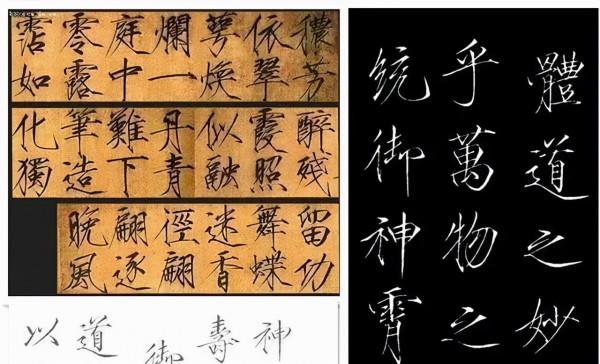 穠芳
依翠
萼煥
爛一
庭中
零露
霑如
醉殘
霞照
似融
丹青
難下
筆造
化獨
留功
舞蝶
迷香
徑翩
翩逐
晚風
體道之妙
乎萬物之
統御神霄
神
壽
御
道
以